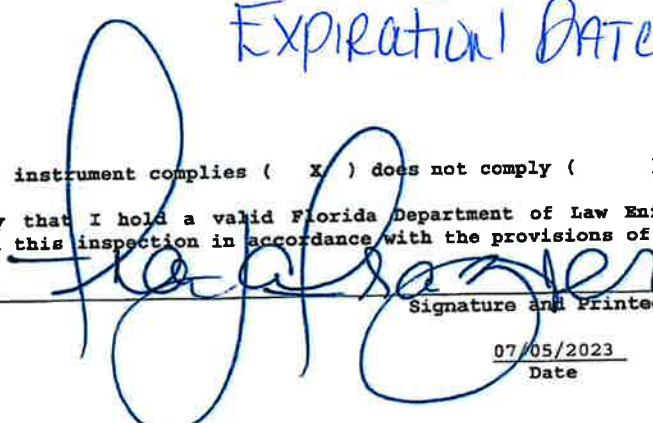 EXPIRATION DATE
instrument complies ( X ) does not comply (
y that I hold a valid Florida Department of Law Enf
this inspection in accordance with the provisions of
Signature and Printed
07/05/2023
Date